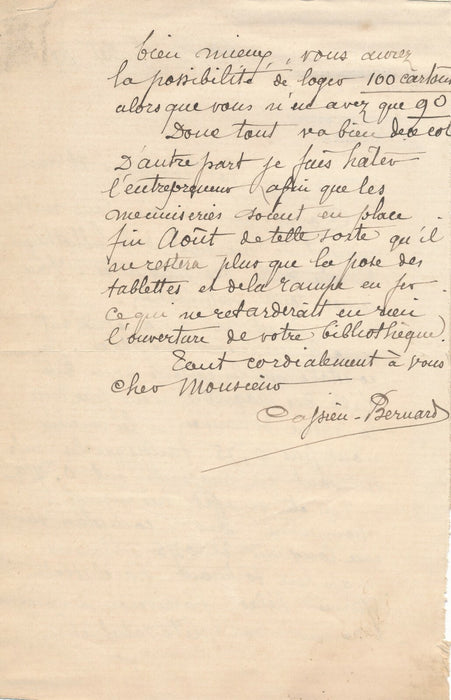 bien mieux, vous aurez
la possibilité de loger 100 cartons
alors que vous n'en avez que 90
Donc tout va bien de ce cot
D'autre part je fais hâter
l'entrepreneur afin que les
menuiseries soient en place
fin Août de telle sorte qu'il
ne restera plus que la pose des
tablettes et de la rampe en fer
ce qui ne retarderait en rien
l'ouverture de votre bibliothèque.
Tout cordialement à vous
cher Monsieur
Cassien-Bernard